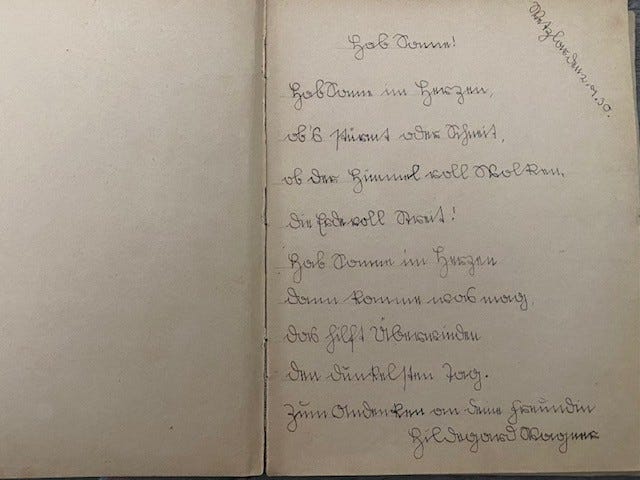 Hab Sonne!
Wetzlar den 2.9.30.
Hab Sonne im Herzen,
ob's stürmt oder Schneit,
ob der Himmel voll Wolken,
die Erde voll Streit!
Hab Sonne im Herzen
dann komme was mag,
das hilft Überwinden
den dunkelsten Tag.
Zum Andenken an deine Freundin
Hildegard Wagner